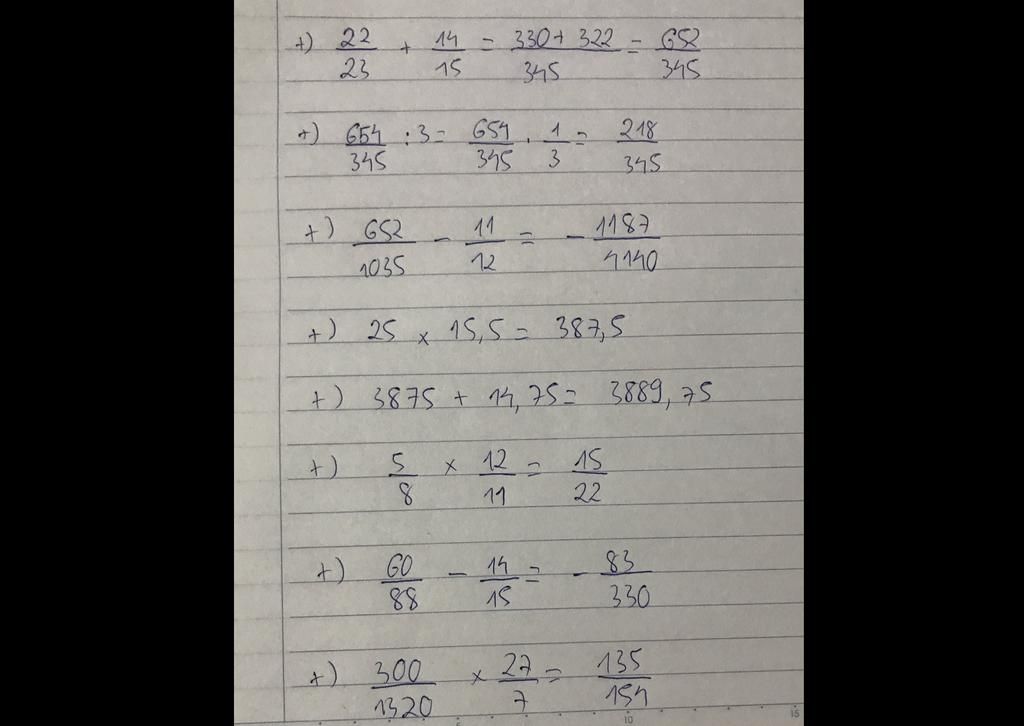 +) 22/23 + 14/15 = 330+322/345 = 652/345
+) 654/345 : 3 = 654/345 . 1/3 = 218/345
+) 652/1035 - 11/12 = - 1187/4140
+) 25 x 15,5 = 387,5
+) 3875 + 14,75 = 3889,75
+) 5/8 x 12/11 = 15/22
+) 60/88 - 14/15 = - 83/330
+) 300/1320 x 27/7 = 135/154
10 15